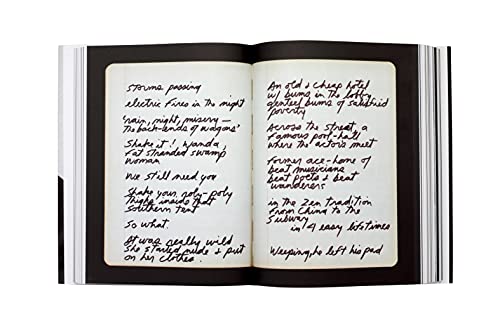 storms passing
electric fires in the night
'rain, night, misery —
the back-ends of wagons'
Shake it!, Wanda,
fat stranded swamp
woman
We still need you
Shake your roly-poly
thighs inside that
Southern tent
So what.
It was really wild
She started nude & put
on her clothes.
An old & cheap hotel
w/ bums in the lobby
genteel bums of satisfied
poverty
Across the street, a
famous pool-hall
where the actors meet
former ace-home of
beat musicians
beat poets & beat
wanderers
in the Zen tradition
from China to the
Subway
in 4 easy lifetimes
Weeping, he left his pad